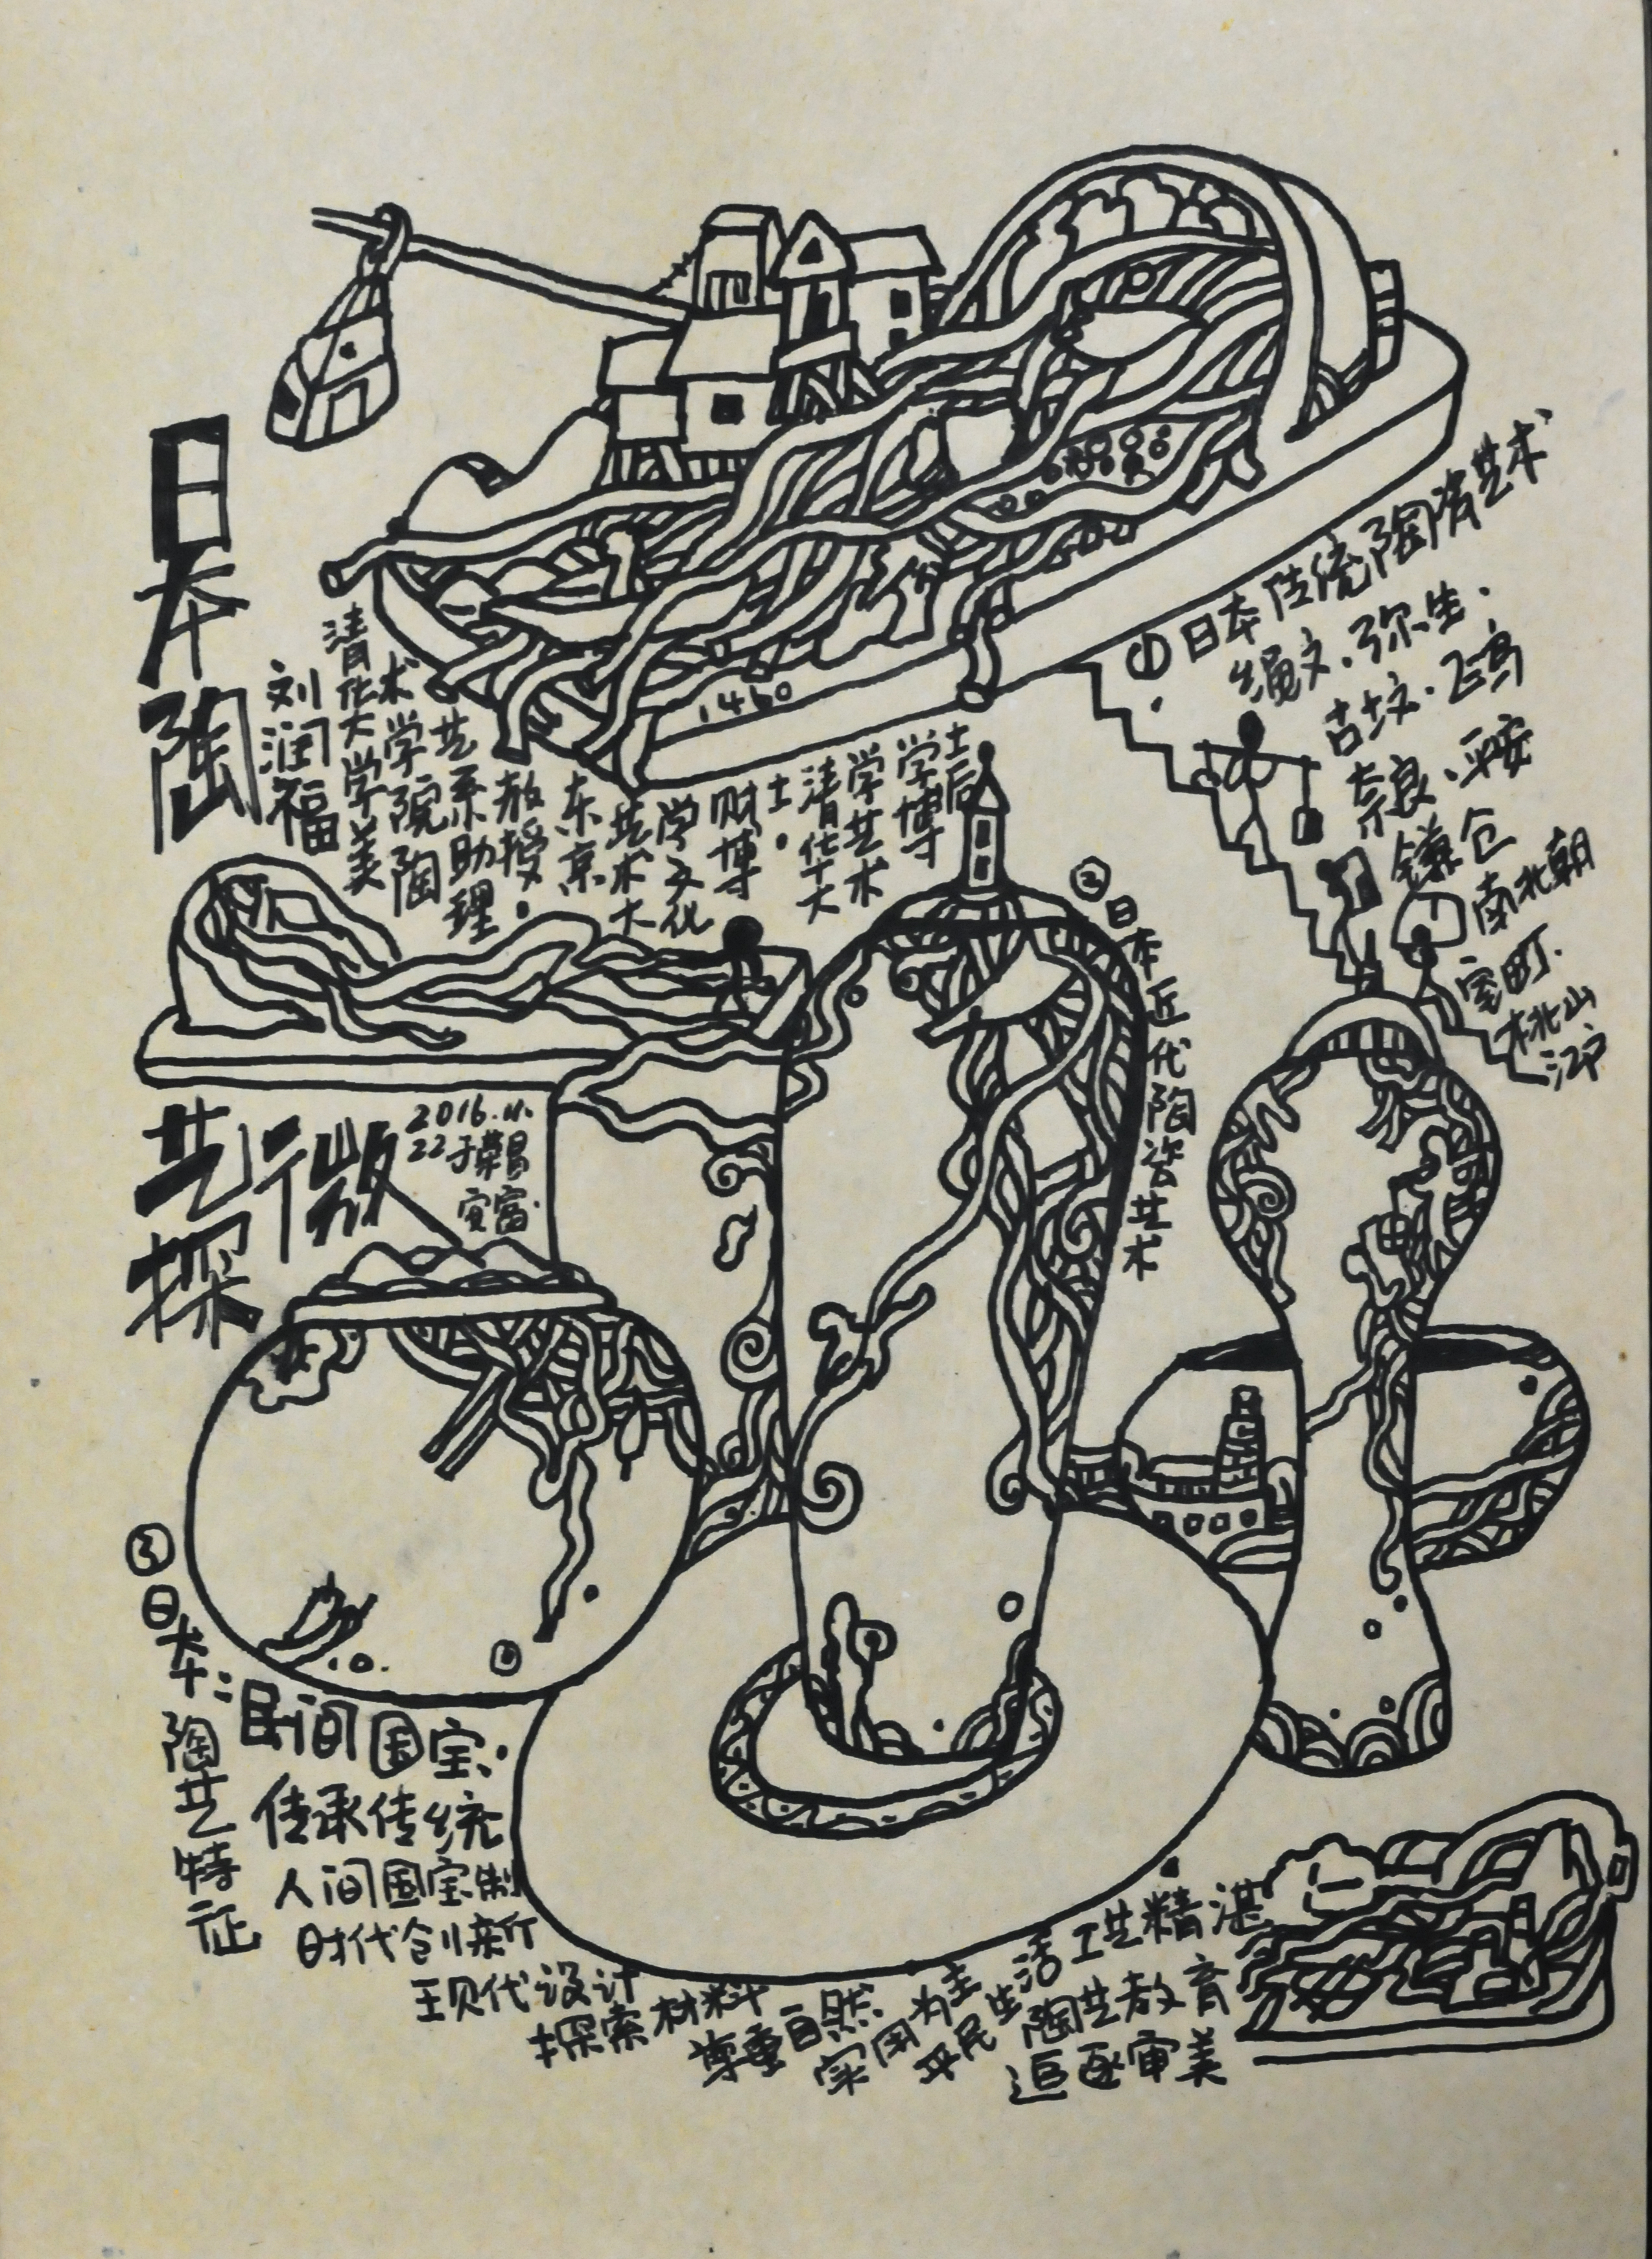 日本陶
艺微
探
刘润福
清华大学美
术学院陶
艺系助理
教授.
东京
艺术大
学文化
财博
士.
清华大
学艺术
学博
士后
1460
2016.11.
22于荣昌
安富.
①日本传统陶瓷艺术
绳文.弥生.
古坟.飞鸟
奈良.平安
镰仓
南北朝
室町.
桃山
江户
②日本近代陶瓷艺术
③日本陶艺特征
：民间国宝.
传承传统
人间国宝制
时代创新
现代设计
探索材料
尊重自然.
实用为主
平民生活
工艺精湛
陶艺教育
追逐审美